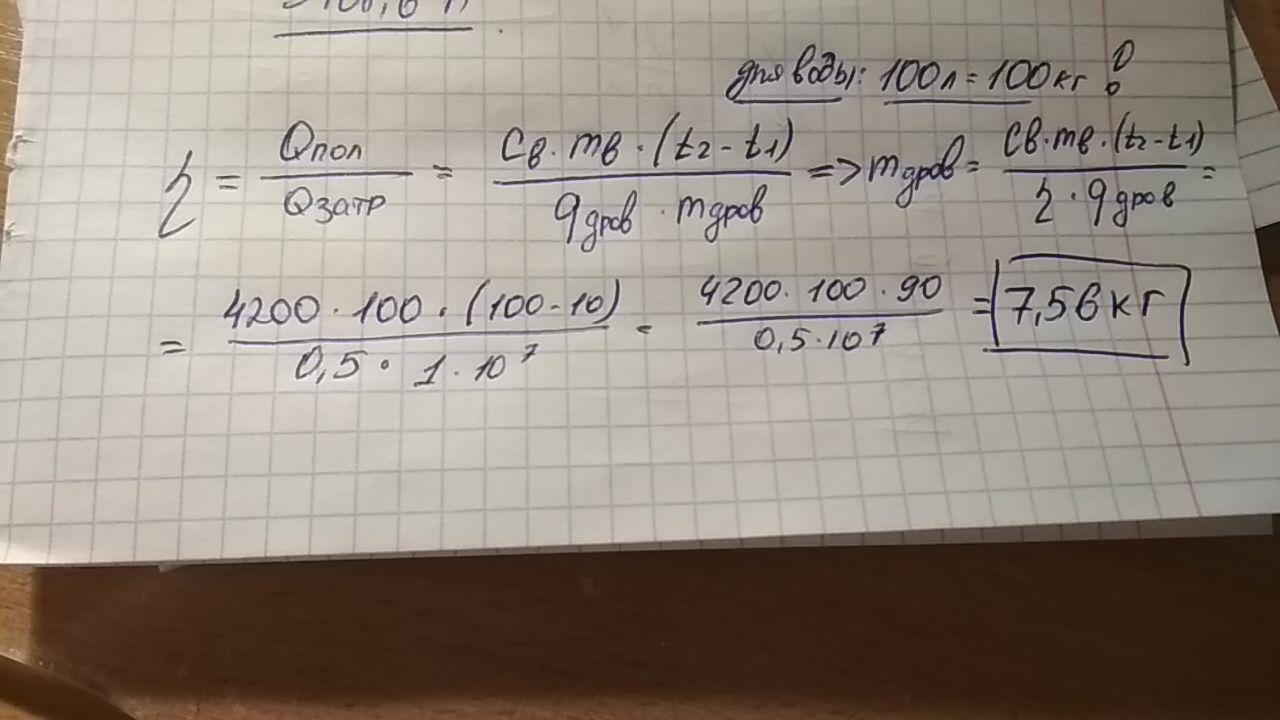 для воды: 100л = 100кг !
η = Qпол / Qзатр = Cв · mв · (t2 - t1) / qдров · mдров => mдров = Cв · mв · (t2 - t1) / η · qдров =
= 4200 · 100 · (100 - 10) / 0,5 · 1 · 10⁷ = 4200 · 100 · 90 / 0,5 · 10⁷ = 7,56 кг